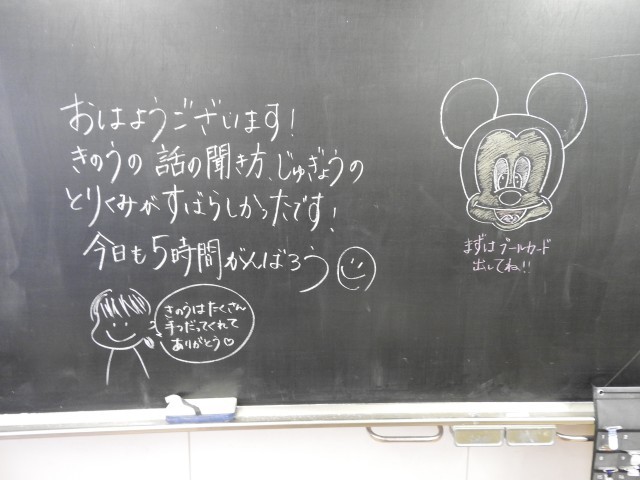 おはようございます!
きのうの話の聞き方、じゅぎょうの
とりくみがすばらしかったです!
今日も5時間がんばろう
きのうはたくさん
手つだってくれて
ありがとう♡
まずはプールカード
出してね!!